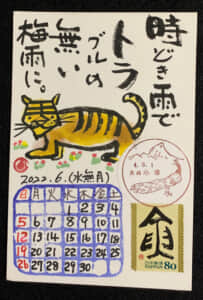 時どき雨で
トラ
ブルの
無い
梅雨に。
2022.6.(水無月)
日月火水木金土
1 2 3 4
5 6 7 8 9 10 11
12 13 14 15 16 17 18
19 20 21 22 23 24 25
26 27 28 29 30
4.6.1
NIPPON
80